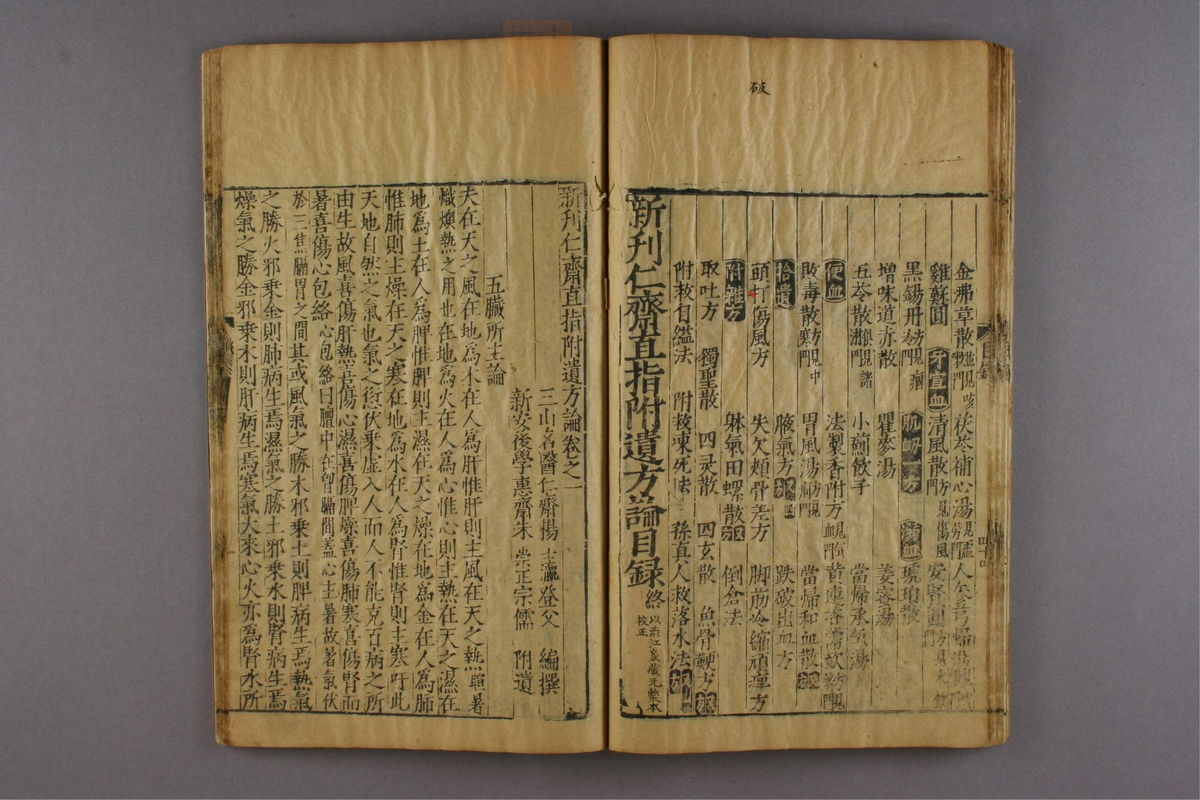 破
金沸草散 茯苓補心湯
雞蘇圓 牙宣血 清風散 方見傷風
黑錫丹 瞿麥湯
增味道赤散 瞿麥湯 姜蜜湯
五苓散 小薊飲子 當歸承气湯
便血 法製香附方
敗毒散 胃風湯 當歸和血散
拾遺 腋氣方 跌破出血方
頭打傷風方 失欠頰骨差方 脚筋冷縮頑痺方
附雜方 躰氣田螺散 倒倉法
取吐方 獨聖散 四灵散 四玄散 魚骨鯁方
附救自縊法 附救凍死法 孫真人救落水法
新刊仁齋直指附遺方論目録終
以浙江家藏元槧本校正
新刊仁齋直指附遺方論卷之一
三山名醫仁齋楊士瀛登父 編撰
新安後學惠齋朱崇正宗儒 附遺
五臟所主論
夫在天之風在地為木在人為肝惟肝則主風在天之熱暄暑
熾燠熱之用也在地為火在人為心惟心則主熱在天之濕在
地為土在人為脾惟脾則主濕在天之燥在地為金在人為肺
惟肺則主燥在天之寒在地為水在人為腎惟腎則主寒吁此
天地自然之氣也氣之愆伏乗虛入人而人不能克百病之所
由生故風喜傷肝熱喜傷心濕喜傷脾燥喜傷肺寒喜傷腎而
暑喜傷心包絡心包絡曰膻中在胷膈間盖心主暑故暑氣伏
於三焦膓胃之間其或風氣之勝木邪乗土則脾病生焉熱氣
之勝火邪乗金則肺病生焉濕氣之勝土邪乗水則腎病生焉
燥氣之勝金邪乗木則肝病生焉寒氣大來心火亦為腎水所